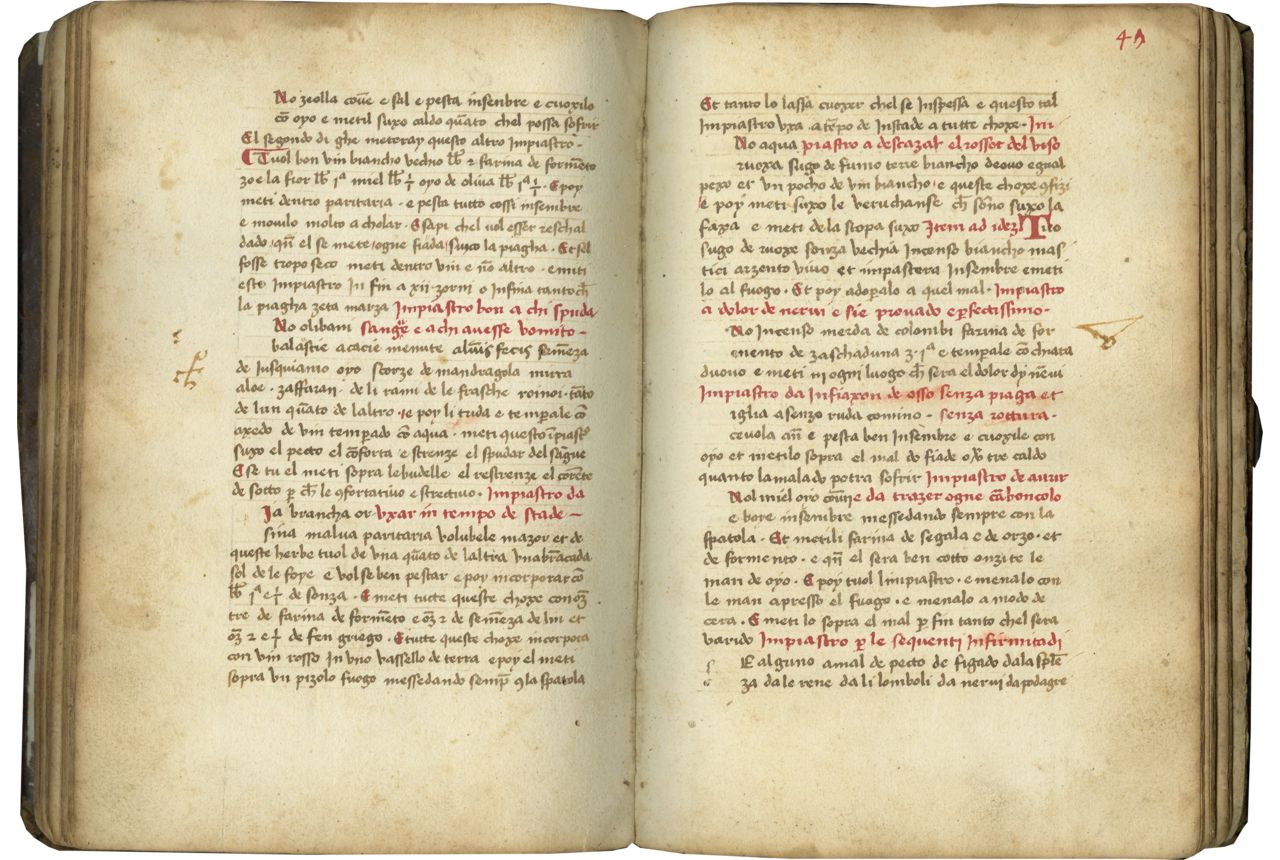 No zeolla coue e sal e pesta insenbre e cuoxilo
cō oyo e metil suxo caldo quāto chel possa sofrir
El segondo di ghe meteray questo altro Impiastro
Tuol bon vin biancho vechio lb 2 farina de formēto
zoe la fior lb 1ª miel lb ½ oyo de oliua lb 1ª ½ · E poy
meti dentro paritaria · e pesta tutto cossi insembre
e mouulo molto a cholar · E sapi chel vol esser reschal
dado · quā el se mete ogne fiada suxo la piagha · Et sel
fosse tropo seco meti dentro vin e nō altro · e miti
esto Impiastro In fin a xii zorni o infina tanto ch̄
la piagha zeta marza Impiastro bon a chi spuda
No olibani sangue e a chi auesse vomito
balastie acacie menute fecis semēza
de Jusquianio oyo scorze de mandragola mirra
aloe · zaffaran · de li rami de le frasche roinoi · tāto
de lun quāto de laltro · e poy li trida e temperale cō
axedo de vin temperado cō aqua · meti questo īpiastr̄
suxo el pecto el cōforta e strenze el spudar del sangue
E se tu el meti sopra le budelle el restrenze el corēte
de sotto p̄ ch̄ le 9fortatiuo e strectiuo · Impiastro da
Ja brancha or vxar in tempo de stade
sina malua paritaria volubele mazor et de
queste herbe tuol de vna quāto de laltra vnabrācada
sol de le foye e vol se ben pestar e poy incorporar cō
lb 1ª e ½ de sonza · E meti tucte queste choxe con oz̄
tre de farina de formēto e oz̄ 2 de semēza de lin et
oz̄ 2 e ½ de fen griego · Et tutte queste choxe incorpora
con vin rosso in vno vassello de terra e poy el meti
sopra vn pizolo fuogo messedando semp̄ 9 la spatola
49
Et tanto lo lassa cuoxer chel se inspessa e questo tal
Impiastro vxa a tēpo de Instade a tutte choxe · Im
No aqua piastro a descazar el rossor del viso
ruoxa sugo de fumo terre biancho de ouo egual
pexo et vn pocho de vin biancho · e queste choxe 9fizi
e poy meti suxo le veruchanse ch̄ sono suxo la
faxa e meti de la stopa suxo Item ad idez Tito
sugo de ruoxe sonza vechia Incenso biancho mas
tici arzento viuo et impastera Insembre e meti
lo al fuogo · Et poy adoperalo a quel mal · Impiastro
a dolor de nerui e sie prouado e perfectissimo
No incenso merda de colombi farina de for
mento de zaschaduna 3 · 1ª e tempale cō chiara
duouo e meti in ogni luogo ch̄ sera el dolor dy nerui
Impiastro da Infiaxon de osso senza piaga et
iglia asenzo ruda comino · senza rottura
ceuola an̄ e pesta ben Insembre e cuoxile con
oyo et metilo sopra el mal do fiade o tre caldo
quanto lamalado potra sofrir Impiastro de aurir
Nol miel oro e da trazer ogne cārboncolo
e bore insembre messedando sempre con la
spatola · Et metili farina de segala e de orzo · et
de formento · e quā el sera ben cotto onzite le
man de oyo · E poy tuol limpiastro · e menalo con
le man apresso el fuogo · e menalo a modo de
cera · E meti lo sopra el mal p̄ fin tanto chel sera
varido Impiastro p̄ le sequenti Infirmitadi
E alguno a mal de pecto de figado dala splē
za da le rene da li lomboli da nerui da podagre